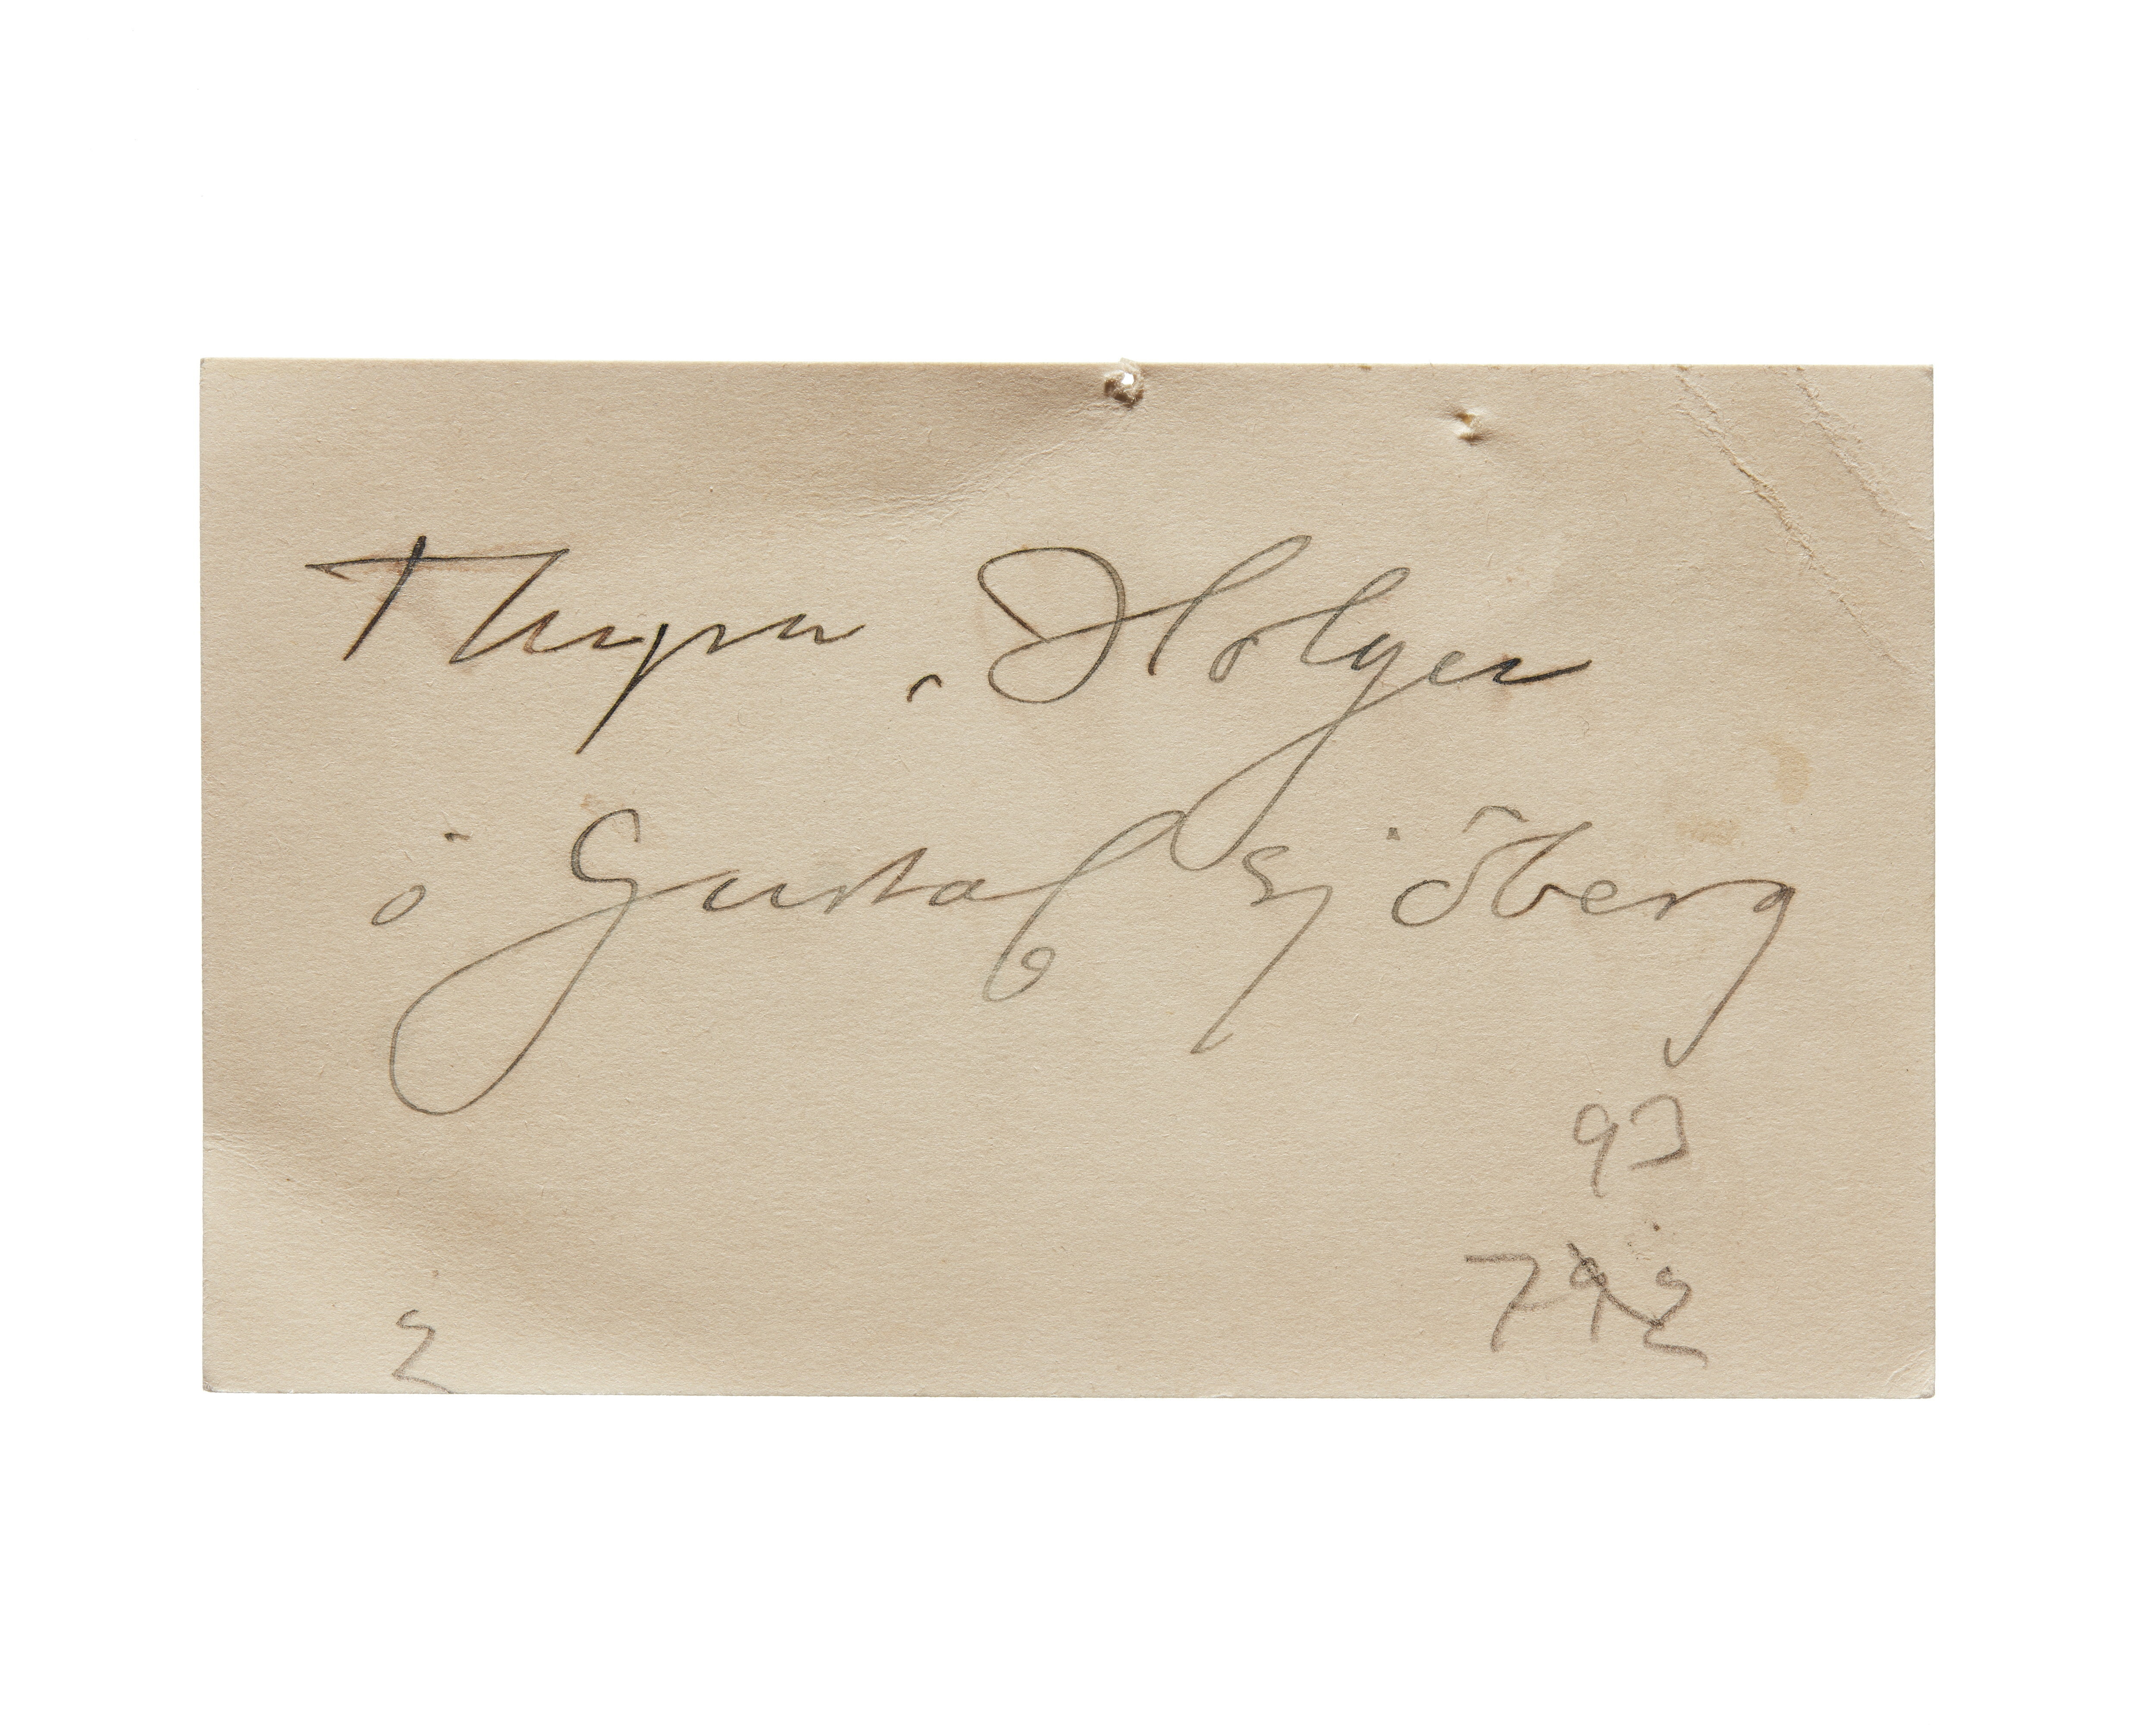 Thyra, Holger
o Gustaf Sjöberg
93
792
2